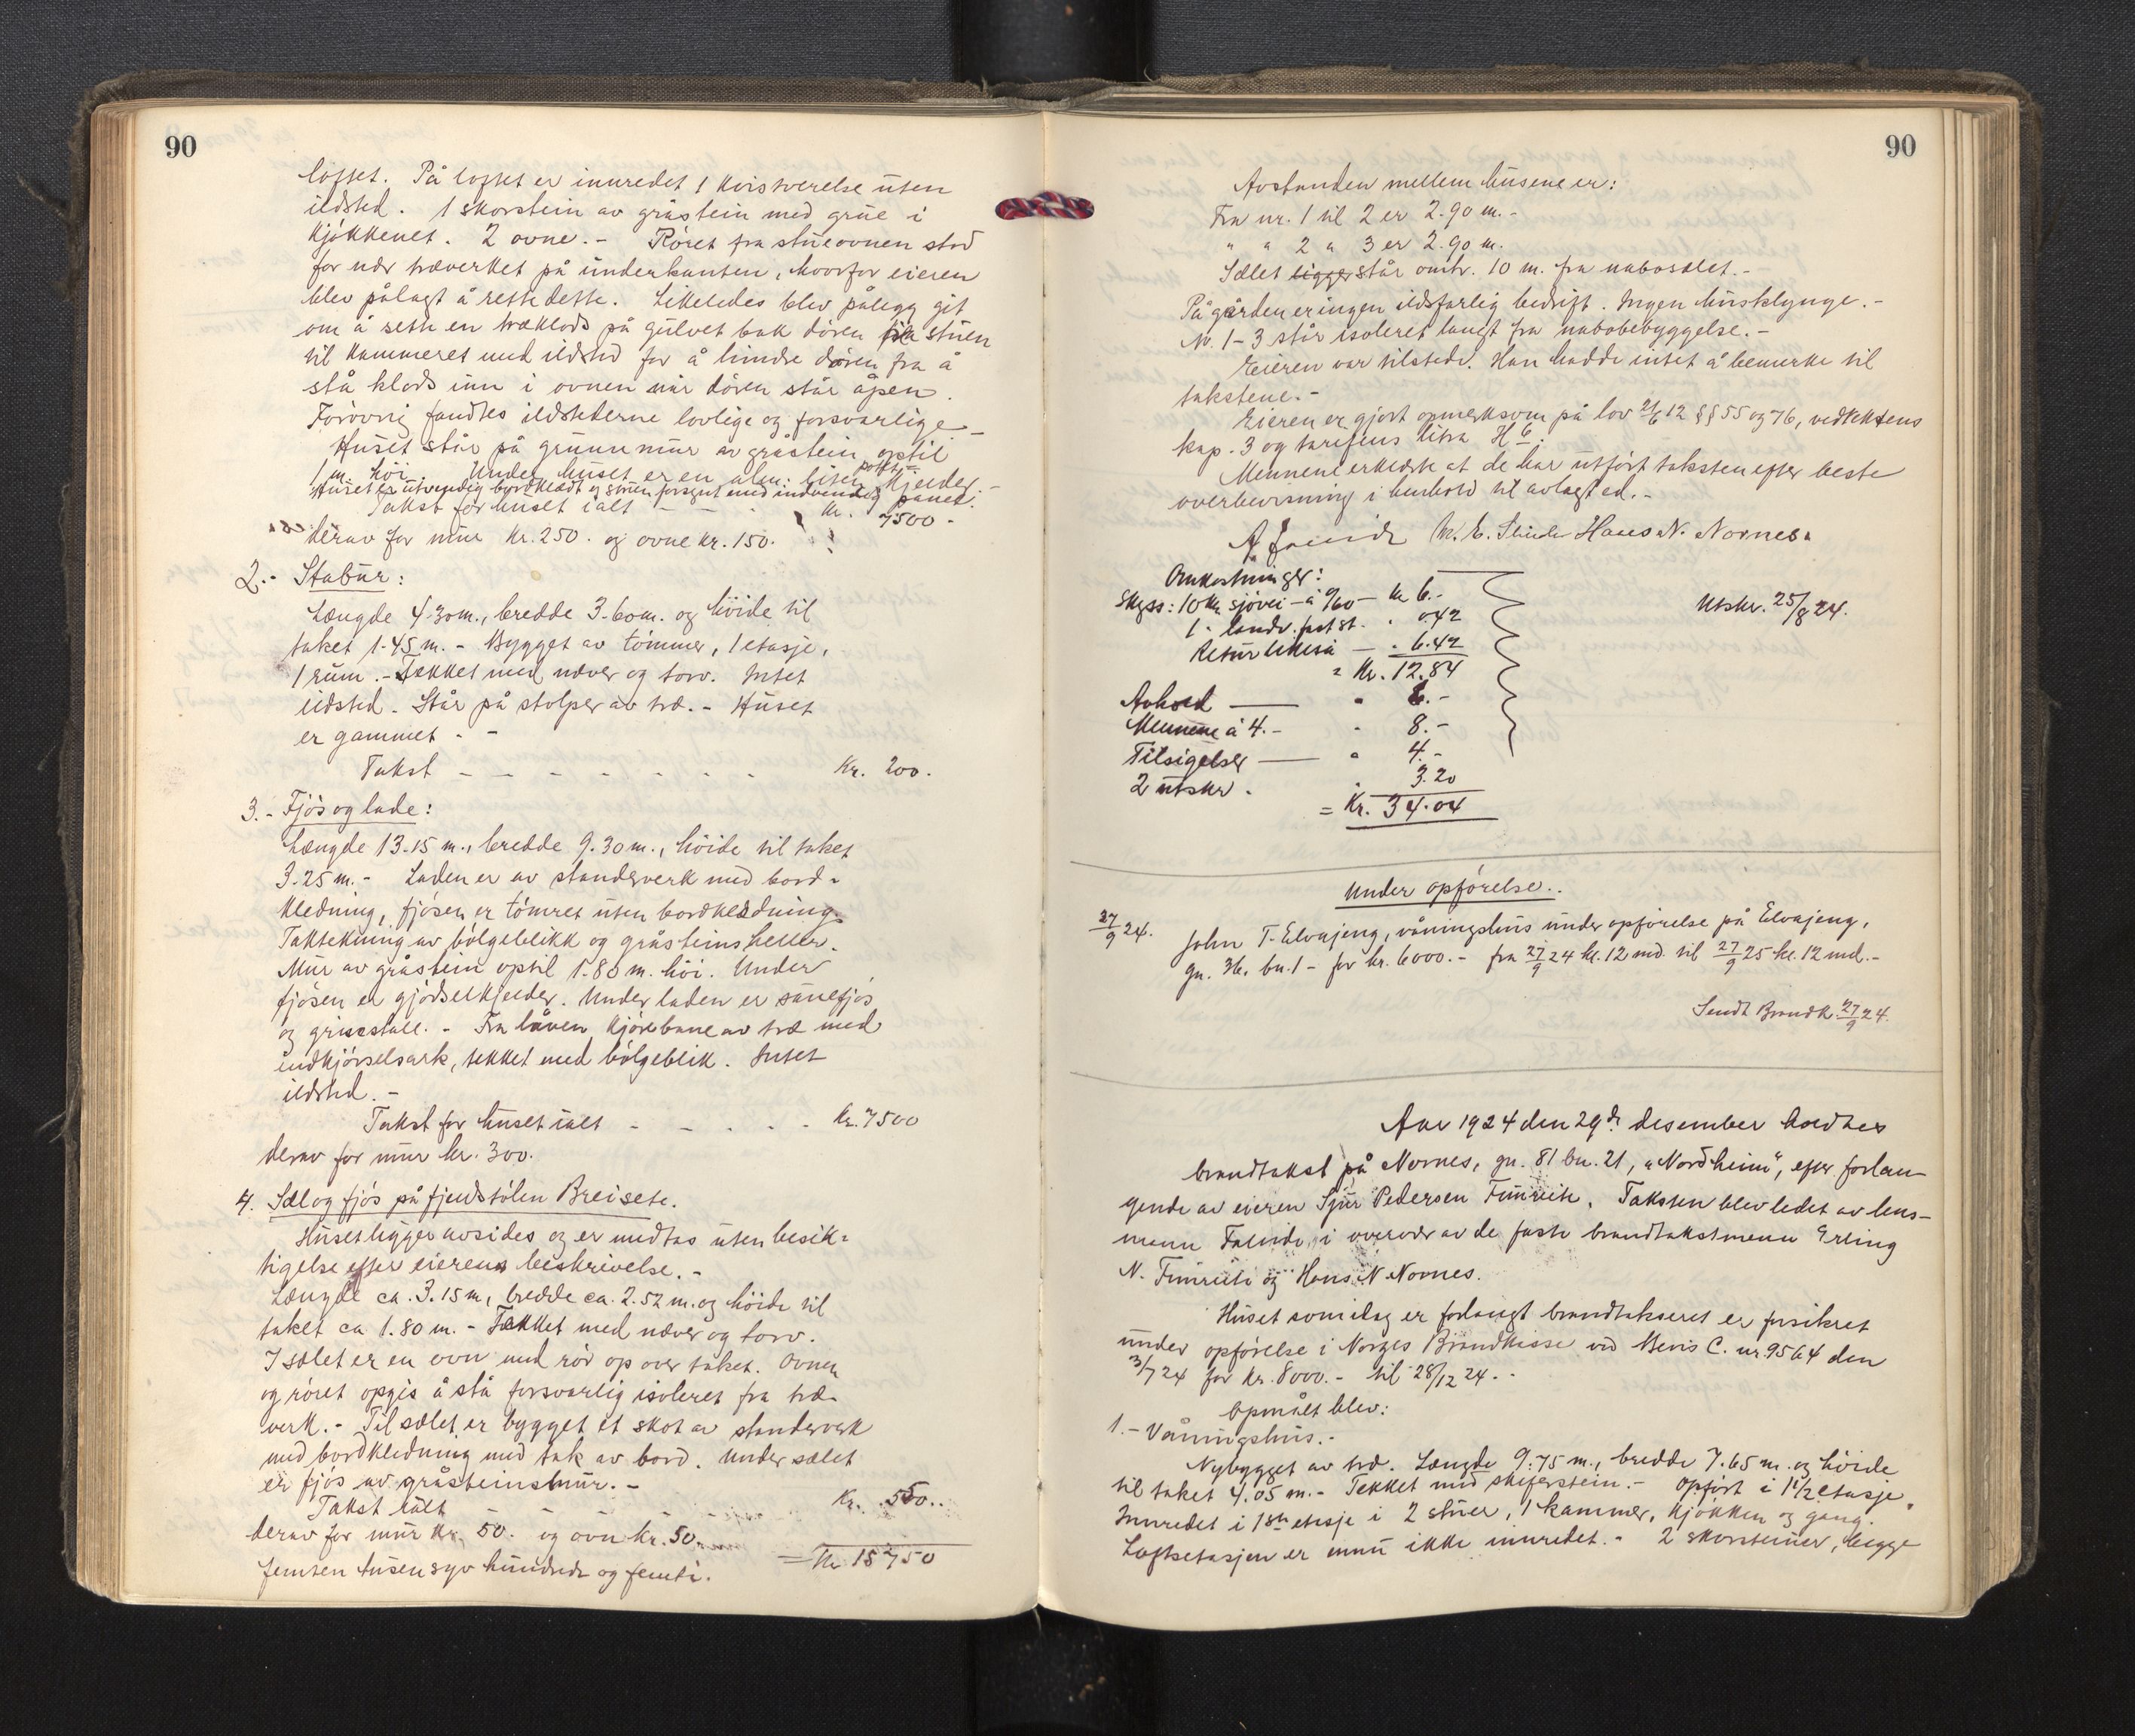 90
loftet. På loftet er innredet 1 kvistverelse uten
ildsted. 1 skorstein av gråstein med grue i
kjøkkenet. 2 ovne.- Røret fra stueovnen stod
for nær træverket på underkanten, hvorfor eieren
blev pålagt å rette dette. Likeledes blev pålegg git
om å sette en træklods på gulvet bak døren fra stuen
til kammeret med ildsted for å hindre døren fra å
slå klods inn i ovnen når døren står åpen.
Forøvrig fandtes ildstederne lovlige og forsvarlige.-
Huset står på grunnmur av gråstein optil
1 m. høi. Under huset er en alm. liten potet= kjelder.-
Huset er utvendig bordklædt og stuen forsynt med indvendig panel.
Takst for huset ialt - - - kr. 7500.-
derav for mur kr. 250. og ovne kr. 150.
2.- Stabur:
Længde 4.30m., bredde 3.60m. og høide til
taket 1.45 m.- Bygget av tømmer, 1 etasje,
1 rum.- Tækket med næver og torv. Intet
ildsted. Står på stolper av træ.- Huset
er gammet.-
Takst - - - - - - - kr. 200.
3.- Fjøs og lade:
Længde 13.15 m., bredde 9.30m., høide til taket
3.25 m.- Laden er av standerverk med bord-
kledning, fjøsen er tømret uten bordkledning.
Taktekning av bølgeblikk og gråsteinsheller.
Mur av gråstein optil 1.80 m. høi. Under
fjøsen er gjødselkjelder. Under laden er sauefjøs
og grisestall.- Fra låven kjørebane av træ med
indkjørselsark, tekket med bølgeblik. Intet
ildsted.-
Takst for huset ialt - - - - - kr. 7500
derav for mur kr. 300.
4. Sæl og fjøs på fjeldstølen Breisete.
Huset ligger avsides og er medtas uten besik-
tigelse efter eierens beskrivelse.-
Længde ca. 3.15m, bredde ca. 2.52 m. og høide til
taket ca 1.80 m.- Tækket med næver og torv.
I sælet er en ovn med rør op over taket. Ovnen
og røret opgis å stå forsvarlig isoleret fra træ-
verk.- Til sælet er bygget et skot av standerverk
med bordkledning med tak av bord. Under sælet
er fjøs av gråsteinsmur.-
Takst ialt kr. 550..
derav for mur kr. 50. og ovn kr. 50.
= kr. 15750
femten tusen syv hundrede og femti.
90
Avstanden mellem husene er:
Fra nr. 1 til 2 er 2.90 m.-
" " 2 " 3 er 2.90 m.
Sælet ligger står omtr. 10 m. fra nabosælet.-
På gården er ingen ildsfarlig bedrift. Ingen husklynge.-
Nr. 1-3 står isoleret langt fra nabobebyggelse.-
Eieren var tilstede. Han hadde intet å bemerke til
takstene.-
Eieren er gjort opmerksom på lov 21/6 12 §§ 55 og 76, vedtektens
kap. 3 og tarifens litra H 6.
Mennene erklærte at de har utført taksten efter beste
overbevisning i henhold til avlagt ed.-
Hans N. Nornes.
Omkostninger:
Skyss: 10 km sjøvei - à 0/60 - kr 6.-
1 - landv. fast st. " 0.42
Retur likeså - " 6.42
= kr. 12.84
Utskr. 25/8 24.
Avhold - " 6.-
Mennene à 4.- " 8.-
Tilsigelser - " 4.-
2 utskr. " 3.20
= kr. 34.04
Under opførelse..
27/9 24.
John T. Elvajeng, våningshus under opførelse på Elvajeng,
gn. 36. bn. 1 - for kr. 6000.- fra 27/9 24 kl. 12 md. til 27/9 25 kl. 12 md.-
Sendt Brandk. 27/9 24.
Aar 1924 den 29de desember holdtes
brandtakst på Nornes, gn. 81 bn. 21, "Nordheim", efter forlan-
gende av eieren Sjur Pedersen Fimreite. Taksten blev ledet av lens-
mann Faleide i overvær av de faste brandtakstmenn Erling
N. Fimreite og Hans N Nornes.
Huset som idag er forlangt brandtakseret er forsikret
under opførelse i Norges Brandkasse ved Bevis C. nr. 9564 den
3/7 24 for kr. 8000.- til 28/12 24.-
Opmålt blev:
1.- Våningshus.-
Nybygget av træ. Længde 9.75 m., bredde 7.65 m. og høide
til taket 4.05 m.- Tekket med skiferstein.- Opført i 1 1/2 etasje.
Innredet i 1ste etasje i 2 stuer, 1 kammer, kjøkken og gang.
Loftsetasjen er ennu ikke innredet.- 2 skorsteiner, begge